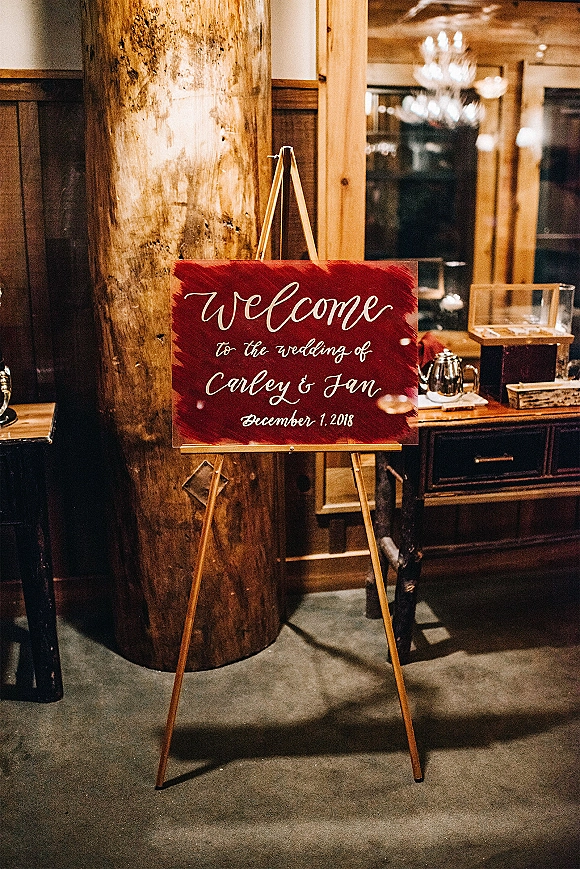 Welcome
to the wedding of
Carley & Jan
December 1, 2018